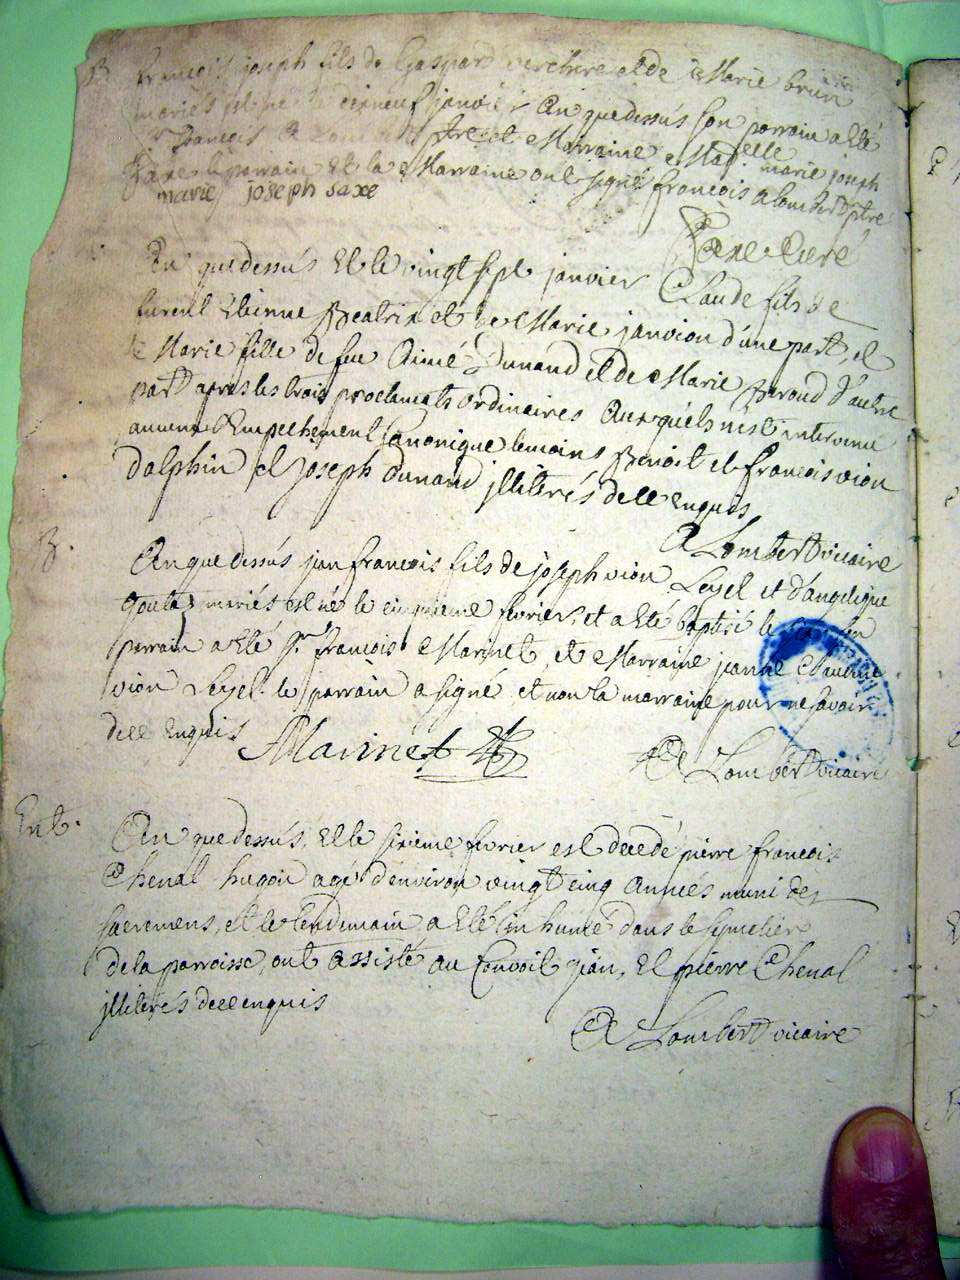 B. francois joseph fils de Gaspard verchere et de Marie brun
mariés est né le dixneuf janvier an que dessús son parrain a eté
Sr. francois A Lombert ptre et Marraine Mad.elle marie joseph
Saxe le parrain et la Marraine ont signé francois a lombert ptre
marie joseph saxe
Saxe Curé
An que dessús et le vingt sept janvier Claude fils de
Etienne Beatrix et de Marie janvion d'une part, et
Marie fille de feu Aimé Dunand et de Marie peroud d'autre
part apres les trois proclamats ordinaires auxquéls n'est intervenu
aucun Empechement Canonique temoins Benoit et francois vion
dalphin et joseph dunand jlliterés de ce enquis
A Lombert vicaire
B. An que dessús jean francois fils de joseph vion Leyel et d'angelique
mariés est né le cinquieme fevrier, et a eté baptisé le
parrain a eté Sr. francois Marinet, et Marraine jeanne Claudine
vion Leyel. le parrain a signé et non la marraine pour ne savoir
de ce enquis
Marinet
A Lombert vicaire
Ent. An que dessús, et le sixieme fevrier est decedé pierre francois
Chenal hugon agé d'environ vingt cinq années muni des
sacremens, et le lendemain a eté inhumé dans le symetiere
de la parroisse, ont assisté au Convoit jean, et pierre Chenal
jlliterés de ce enquis
A Lombert vicaire